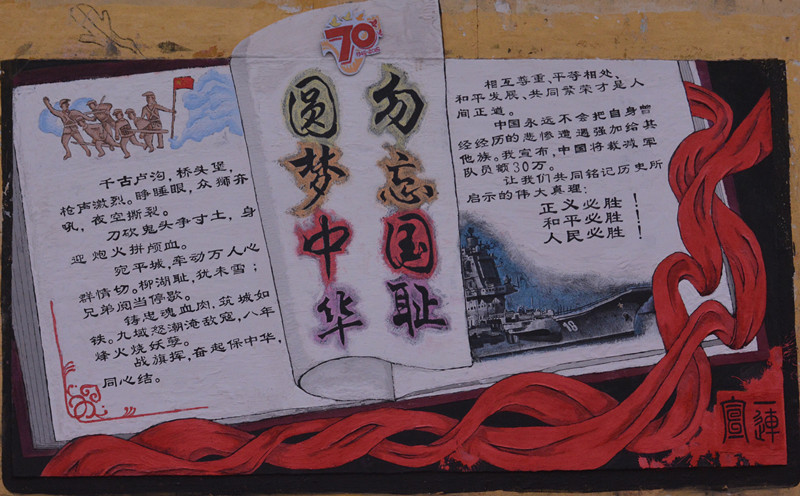 千古卢沟,桥头堡,
枪声激烈。睁睡眼,众狮亦
吼,夜空撕裂。
刀砍鬼头争寸土,身
迎炮火拼颅血。
宛平城,牵动万人心
群情切。柳湖耻,犹未雪;
兄弟阋当停歇。
铸忠魂血肉,筑城如
铁。九域怒潮淹敌寇,八年
烽火烧妖孽。
战旗挥,奋起保中华,
同心结。
70
勿忘国耻
圆梦中华
相互尊重、平等相处、
和平发展、共同繁荣才是人
间正道。
中国永远不会把自身曾
经经历的悲惨遭遇强加给其
他族。我宣布,中国将裁减军
队员额30万。
让我们共同铭记历史所
启示的伟大真理:
正义必胜!
和平必胜!
人民必胜!
18
一連
宣